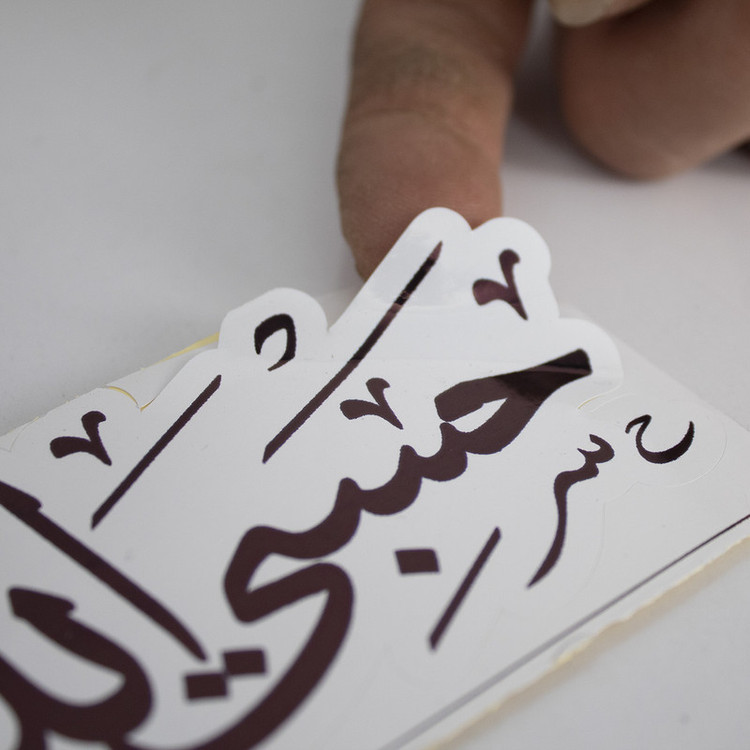 حسبي